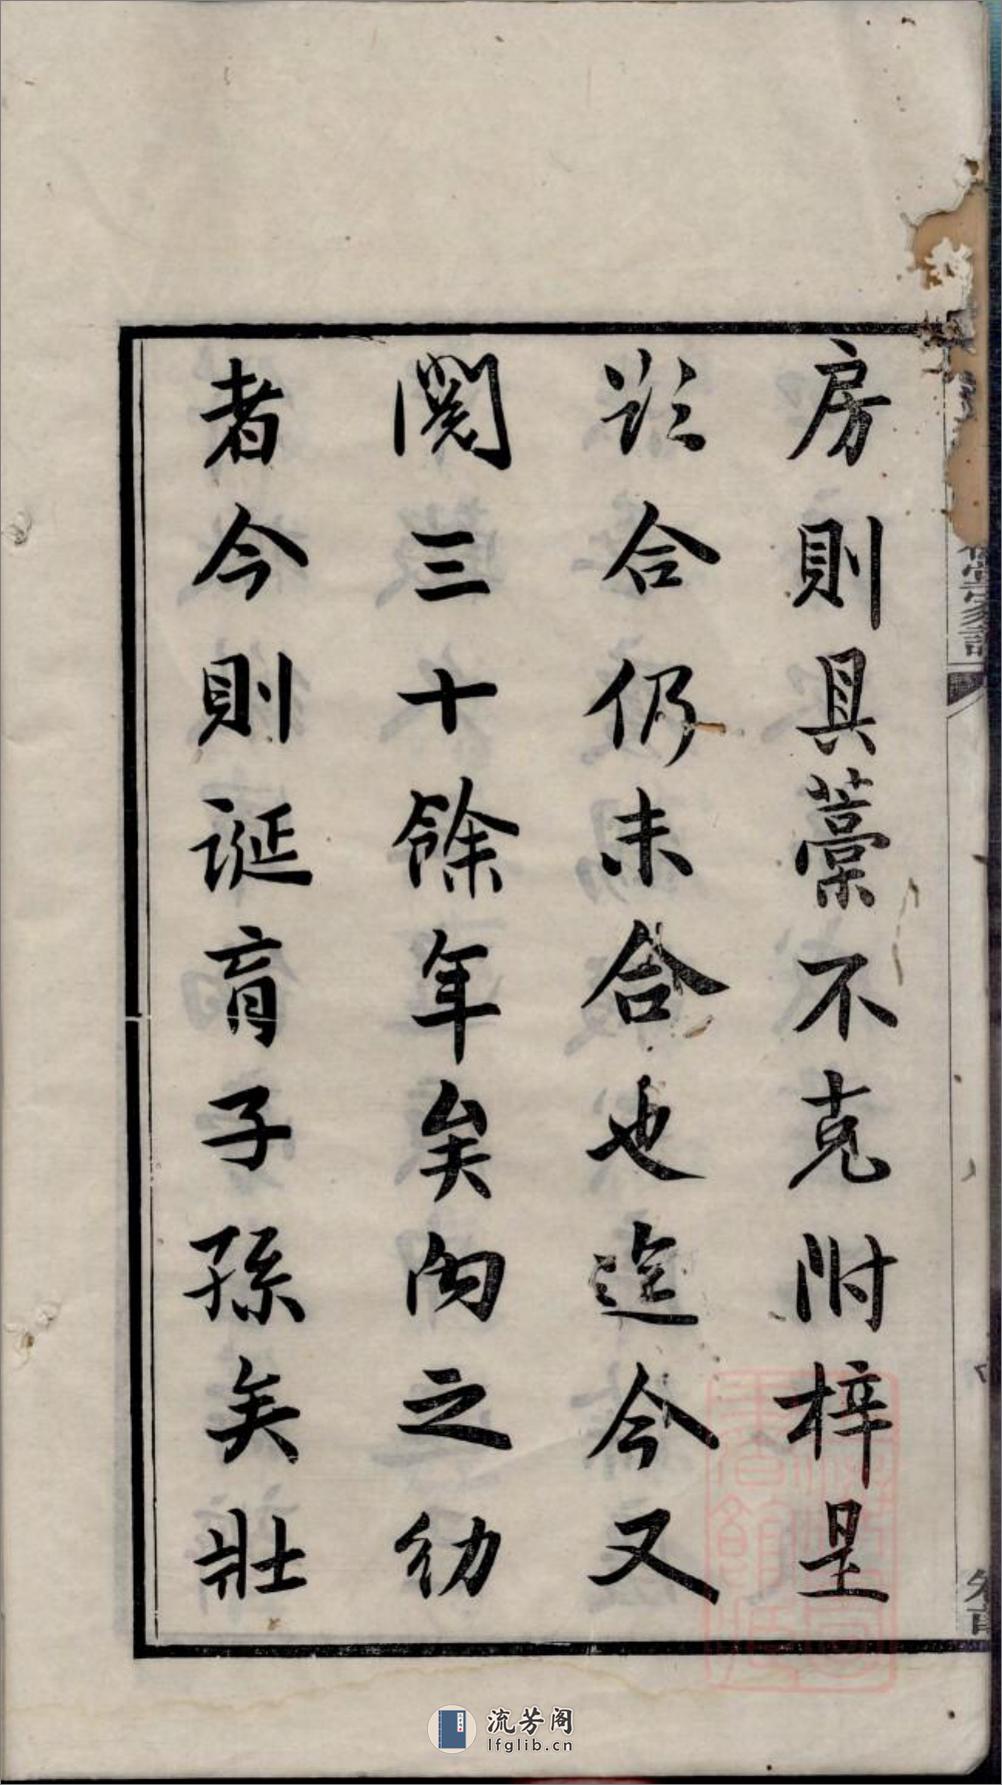 房則具藁不克附梓是
欲合仍未合也迄今又
閱三十餘年矣向之幼
者今則誕育子孫矣壯
堂家譜
卷首
流芳阁
lfglib.cn